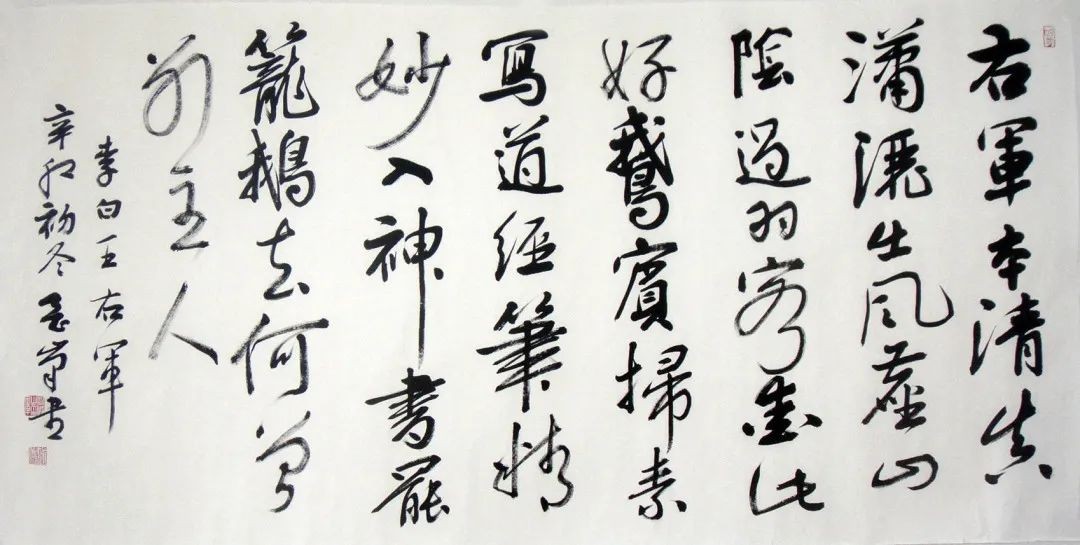 右軍本清真
瀟灑出風塵山
陰過羽客愛此
好鵝賓掃素
寫道經筆精
妙入神書罷
籠鵝去何曾
別主人
李白王右軍
辛卯初冬 書